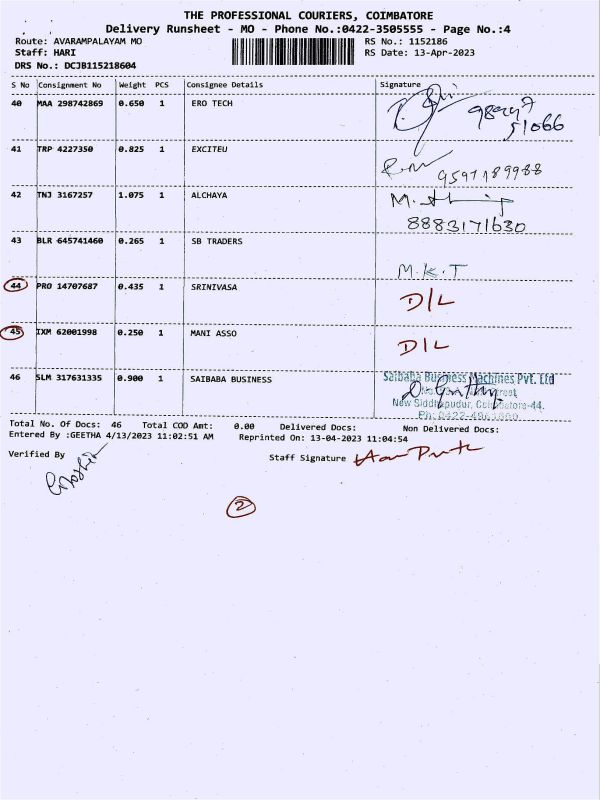 THE PROFESSIONAL COURIERS, COIMBATORE
Delivery Runsheet - MO - Phone No.:0422-3505555 - Page No.:4
Route: AVARAMPALAYAM MO RS No.: 1152186
Staff: HARI RS Date: 13-Apr-2023
DRS No.: DCJB115218604
S No Consignment No Weight PCS Consignee Details Signature
40 MAA 298742869 0.650 1 ERO TECH
51066
41 TRP 4227350 0.825 1 EXCITEU
9597189988
42 TNJ 3167257 1.075 1 ALCHAYA
8883171630
43 BLR 645741460 0.265 1 SB TRADERS
M.K.T
44 PRO 14707687 0.435 1 SRINIVASA
D/L
45 IXM 62001998 0.250 1 MANI ASSO
D/L
46 SLM 317631335 0.900 1 SAIBABA BUSINESS Saibaba Business Machines Pvt. Ltd
New Siddhapudur, Coimbatore-44.
Total No. Of Docs: 46 Total COD Amt: 0.00 Delivered Docs: Non Delivered Docs:
Entered By :GEETHA 4/13/2023 11:02:51 AM Reprinted On: 13-04-2023 11:04:54
Verified By Staff Signature
2